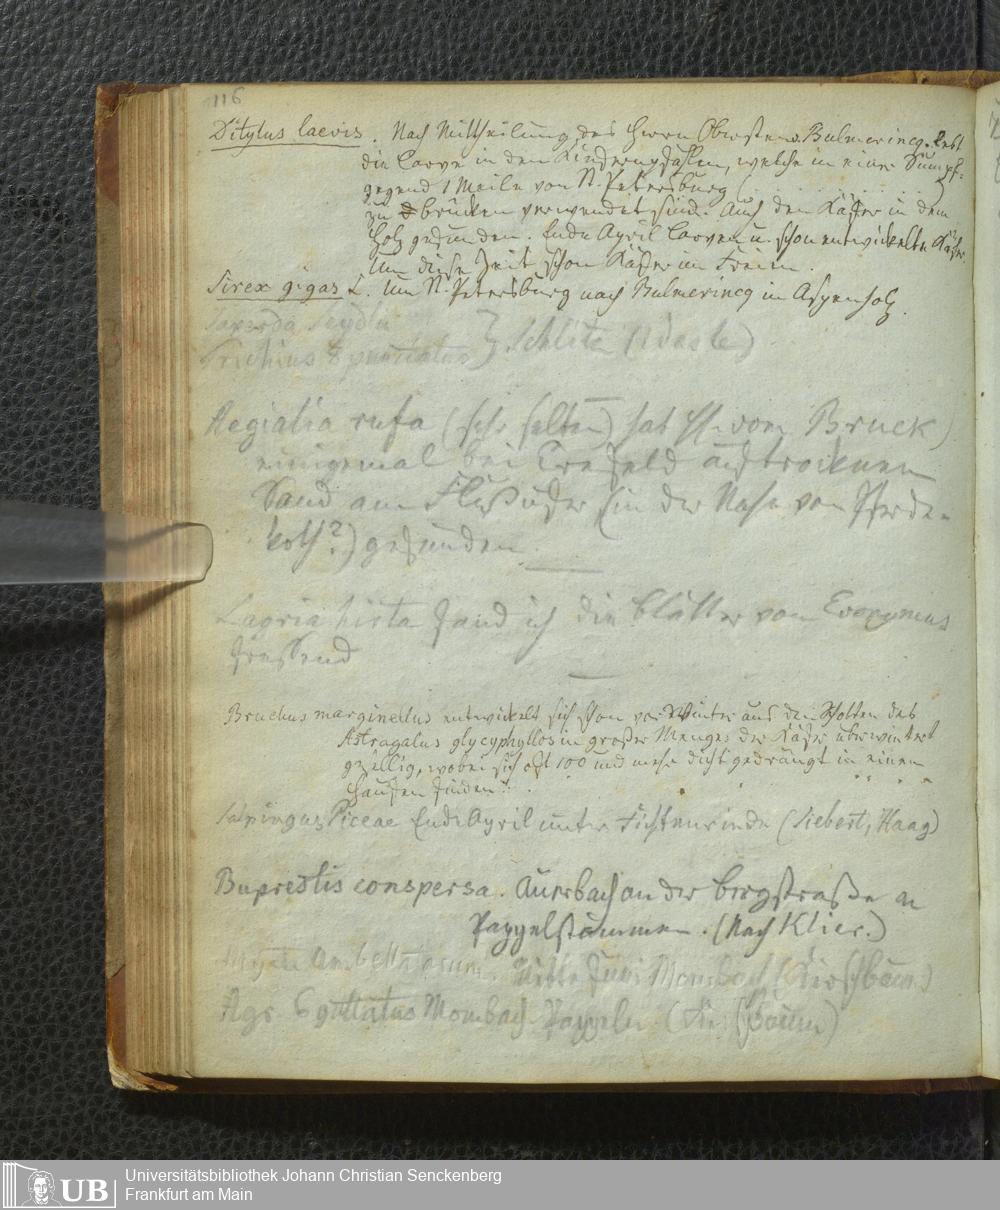 116
Ditylus laevis. Nach Mittheilung des Herrn Obersten v. Bulmerincq lebt
die Larve in den                , welche in einer Sumpf-
gegend 1 Meile von St. Petersburg
zu Brücken verwendet sind. Auch den Käfer in dem
Holz gefunden. Ende April Larven u. schon entwickelte Käfer.
Um diese Zeit schon Käfer im Freien.
Sirex gigas L. Um St. Petersburg nach Bulmerincq in Aspenholz.
Saperda Seydlii
Trichius 8 punctatus } Schlitz
Aegialia rufa (sehr selten) hat H. vom Bruck
einigemal bei Crefeld auf trocknem
Sand am Flußufer (in der Nähe von Pferde-
koth?) gefunden.
Lagria hirta fand ich die Blätter von Evonymus
fressend
Bruchus marginellus entwickelt sich schon vor Winter aus den Schoten des
Astragalus glycyphyllos in großer Menge; der Käfer überwintert
gesellig, wobei sich oft 100 und mehr dicht gedrängt in einem
Haufen finden.
Salpingus Piceae Ende April unter Fichtenrinde (Siebert, Haag)
Buprestis conspersa. Auerbach an der Bergstraße an
Pappelstämmen. (Nach Klier.)
Mitte Juni Mombach (Kirschbaum)
Agr. 6 guttatus Mombach Pappeln (Kirschbaum)
Universitätsbibliothek Johann Christian Senckenberg
Frankfurt am Main
UB